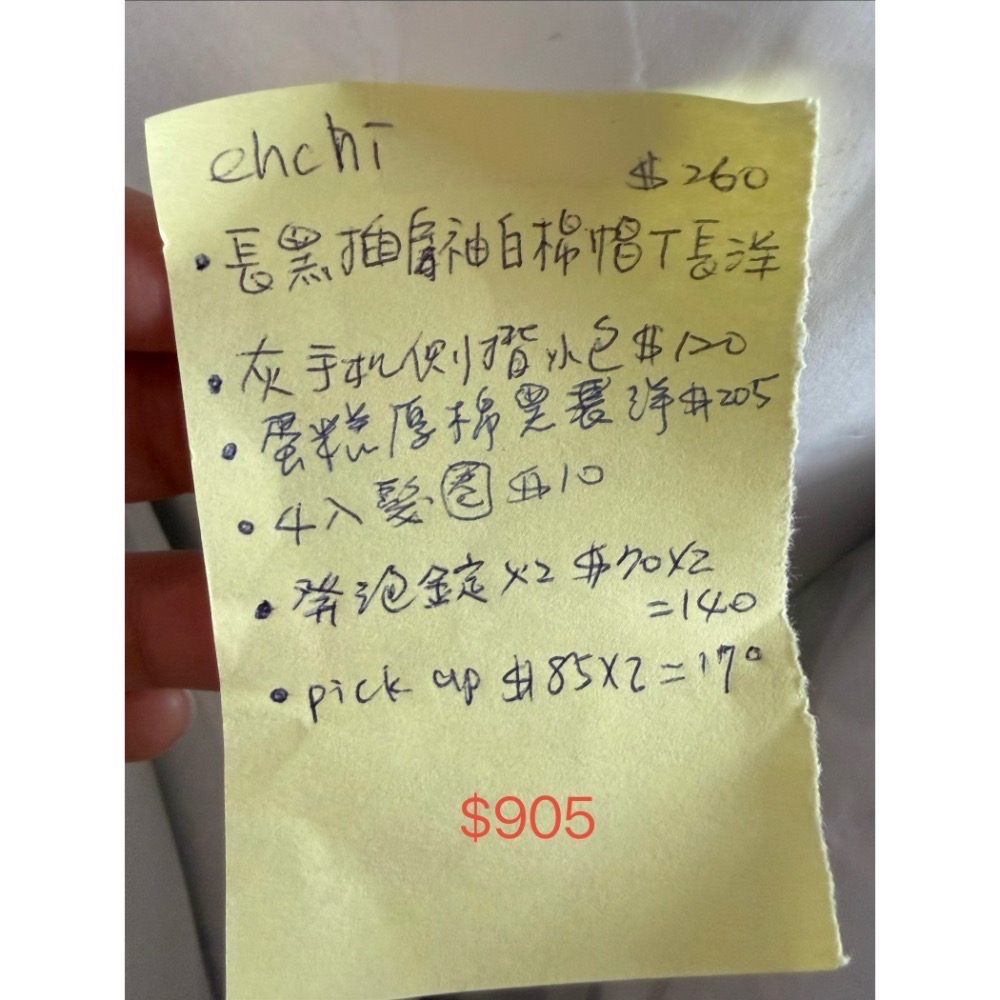 ehchi
$260
• 長黑抽肩袖白棉帽T長洋
• 灰手机側揹小包$120
• 蛋糕厚棉黑長洋$205
• 4入髮圈$10
• 發泡錠x2 $70x2
=140
• pick up $85x2=170
$905